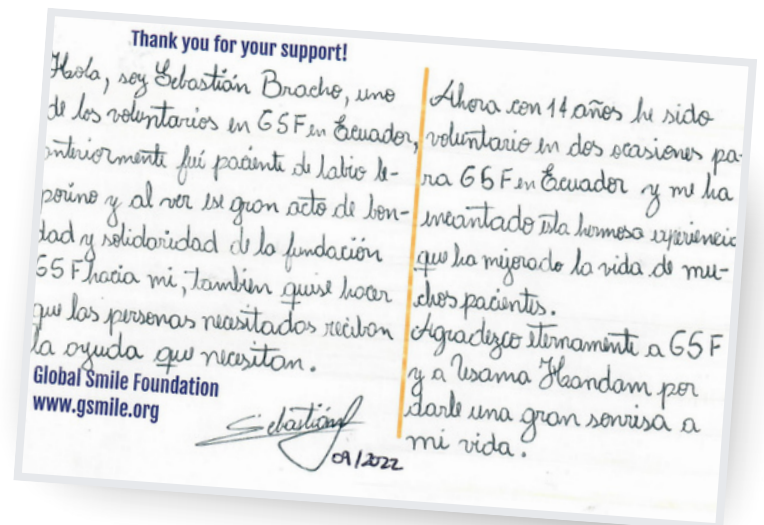 Thank you for your support!
Hola, soy Sebastián Bracho, uno
de los voluntarios en GSF en Ecuador,
anteriormente fuí paciente de labio le-
porino y al ver ese gran acto de bon-
dad y solidaridad de la fundación
GSF hacia mi, tambien quise hacer
que las personas necesitadas reciban
la ayuda que necesitan.
Global Smile Foundation
www.gsmile.org
Sebastián
09/2022
Ahora con 14 años he sido
voluntario en dos ocasiones pa-
ra GSF en Ecuador y me ha
encantado esta hermosa experiencia
que ha mejorado la vida de mu-
chos pacientes.
Agradezco eternamente a GSF
y a Usama Hamdam por
darle una gran sonrisa a
mi vida.